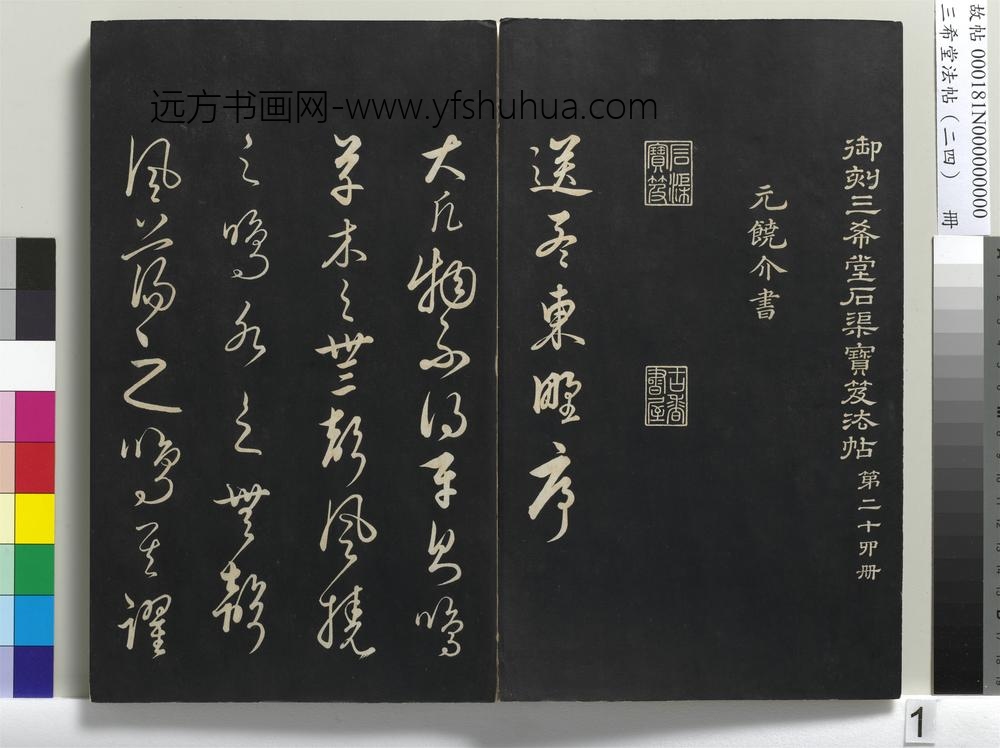 远方书画网-www.yfshuhua.com
故帖 000181N000000000
三希堂法帖（二四） 册
御刻三希堂石渠寶笈法帖 第二十四册
元饒介書
石渠寶笈
古香書屋
送孟東野序
大凡物不得平則鳴
草木之無聲風撓
之鳴水之無聲
風蕩之鳴其躍
1